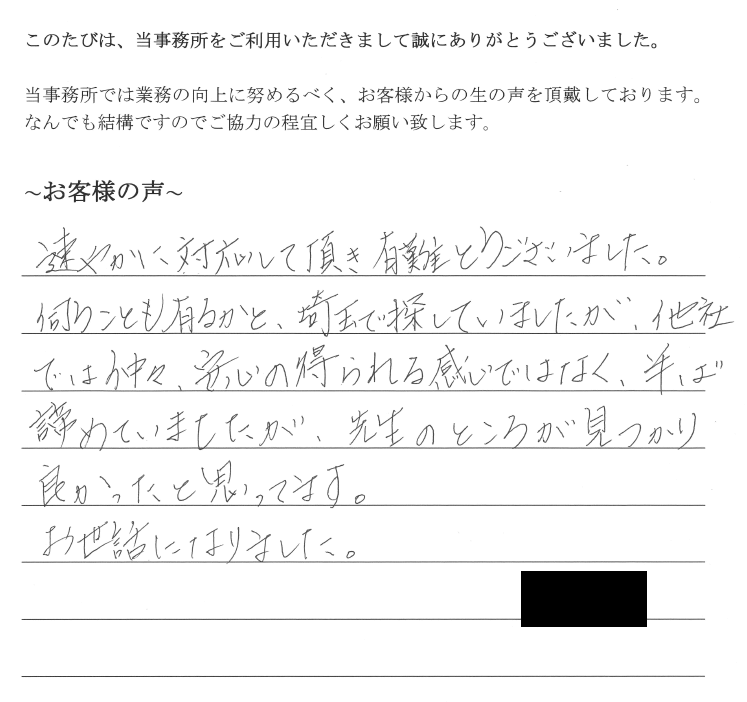 このたびは、当事務所をご利用いただきまして誠にありがとうございました。
当事務所では業務の向上に努めるべく、お客様からの生の声を頂戴しております。
なんでも結構ですのでご協力の程宜しくお願い致します。
~お客様の声~
速やかに対応して頂き有難とうございました。
伺うことも有るかと、埼玉で探していましたが、他社
では仲々、安心の得られる感じではなく、半ば
諦めていましたが、先生のところが見つかり
良かったと思ってます。
お世話になりました。